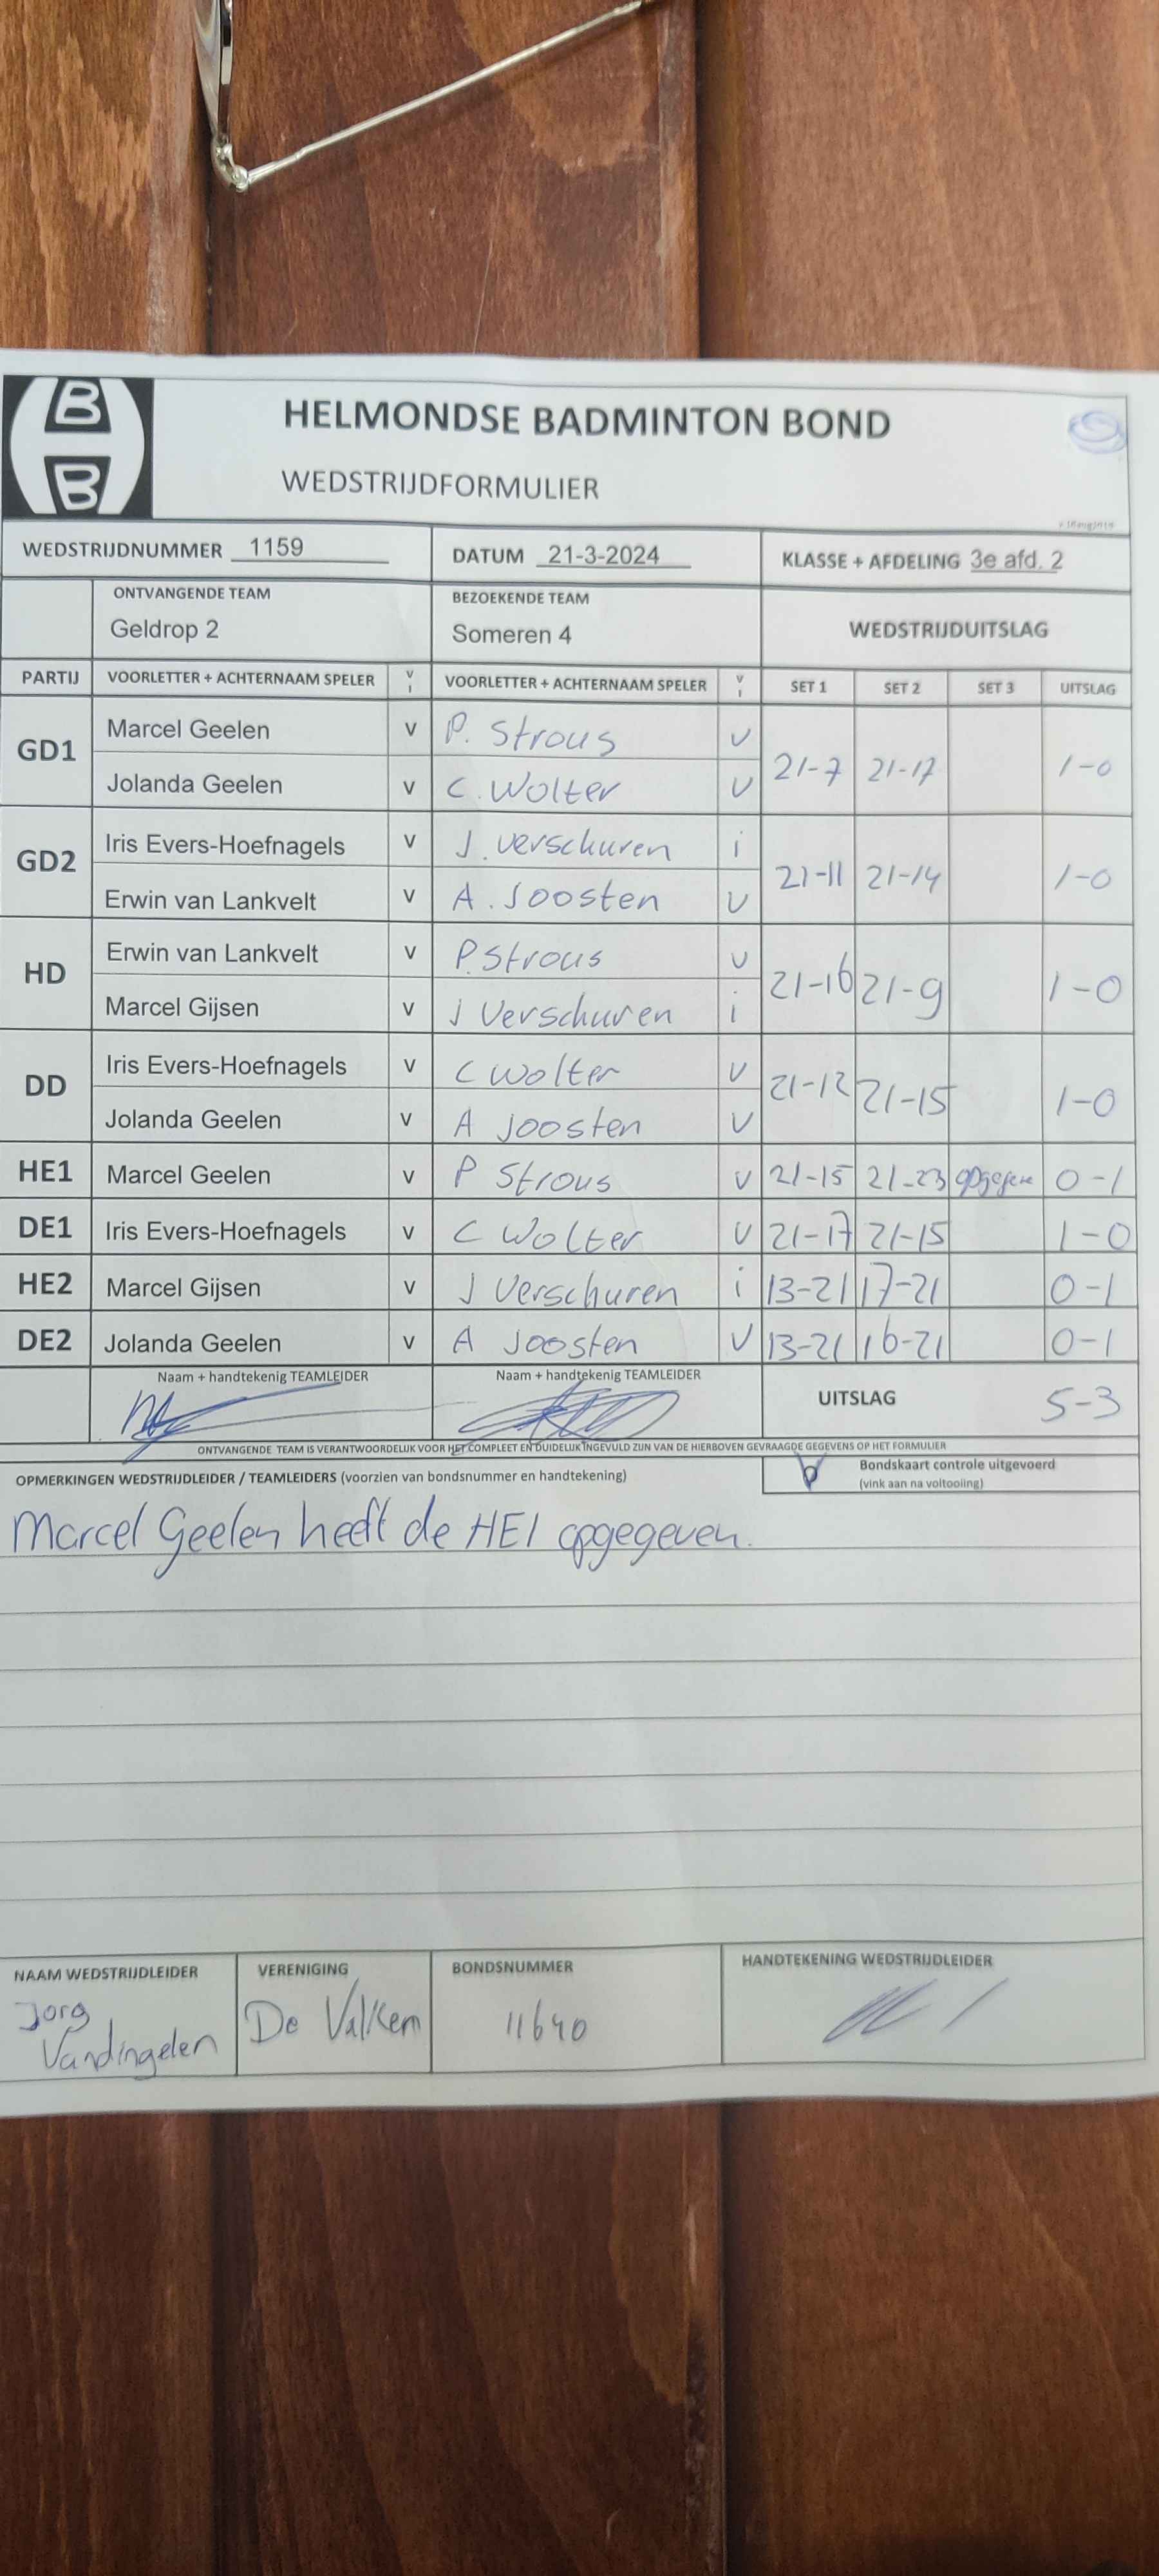 B
B
HELMONDSE BADMINTON BOND
WEDSTRIJDFORMULIER
WEDSTRIJDNUMMER 1159 DATUM 21-3-2024 KLASSE + AFDELING 3e afd. 2
ONTVANGENDE TEAM BEZOEKENDE TEAM
Geldrop 2 Someren 4 WEDSTRIJDUITSLAG
PARTIJ VOORLETTER + ACHTERNAAM SPELER V I VOORLETTER + ACHTERNAAM SPELER V I SET 1 SET 2 SET 3 UITSLAG
GD1 Marcel Geelen v P. Strous v 21-7 21-17 1-0
Jolanda Geelen v C. Wolter v
GD2 Iris Evers-Hoefnagels v J. verschuren i 21-11 21-14 1-0
Erwin van Lankvelt v A. Joosten v
HD Erwin van Lankvelt v P. Strous v 21-16 21-9 1-0
Marcel Gijsen v J Verschuren i
DD Iris Evers-Hoefnagels v C Wolter v 21-12 21-15 1-0
Jolanda Geelen v A Joosten v
HE1 Marcel Geelen v P Strous v 21-15 21-23 0-1
DE1 Iris Evers-Hoefnagels v C Wolter v 21-17 21-15 1-0
HE2 Marcel Gijsen v J Verschuren i 13-21 17-21 0-1
DE2 Jolanda Geelen v A Joosten v 13-21 16-21 0-1
Naam + handtekenig TEAMLEIDER Naam + handtekenig TEAMLEIDER UITSLAG 5-3
ONTVANGENDE TEAM IS VERANTWOORDELIJK VOOR HET COMPLEET EN DUIDELIJK INGEVULD ZIJN VAN DE HIERBOVEN GEVRAAGDE GEGEVENS OP HET FORMULIER
OPMERKINGEN WEDSTRIJDLEIDER / TEAMLEIDERS (voorzien van bondsnummer en handtekening) Bondskaart controle uitgevoerd
(vink aan na voltooiing)
Marcel Geelen heeft de HE1 opgegeven.
NAAM WEDSTRIJDLEIDER VERENIGING BONDSNUMMER HANDTEKENING WEDSTRIJDLEIDER
Jorg De Valken 11640
Vandingelen